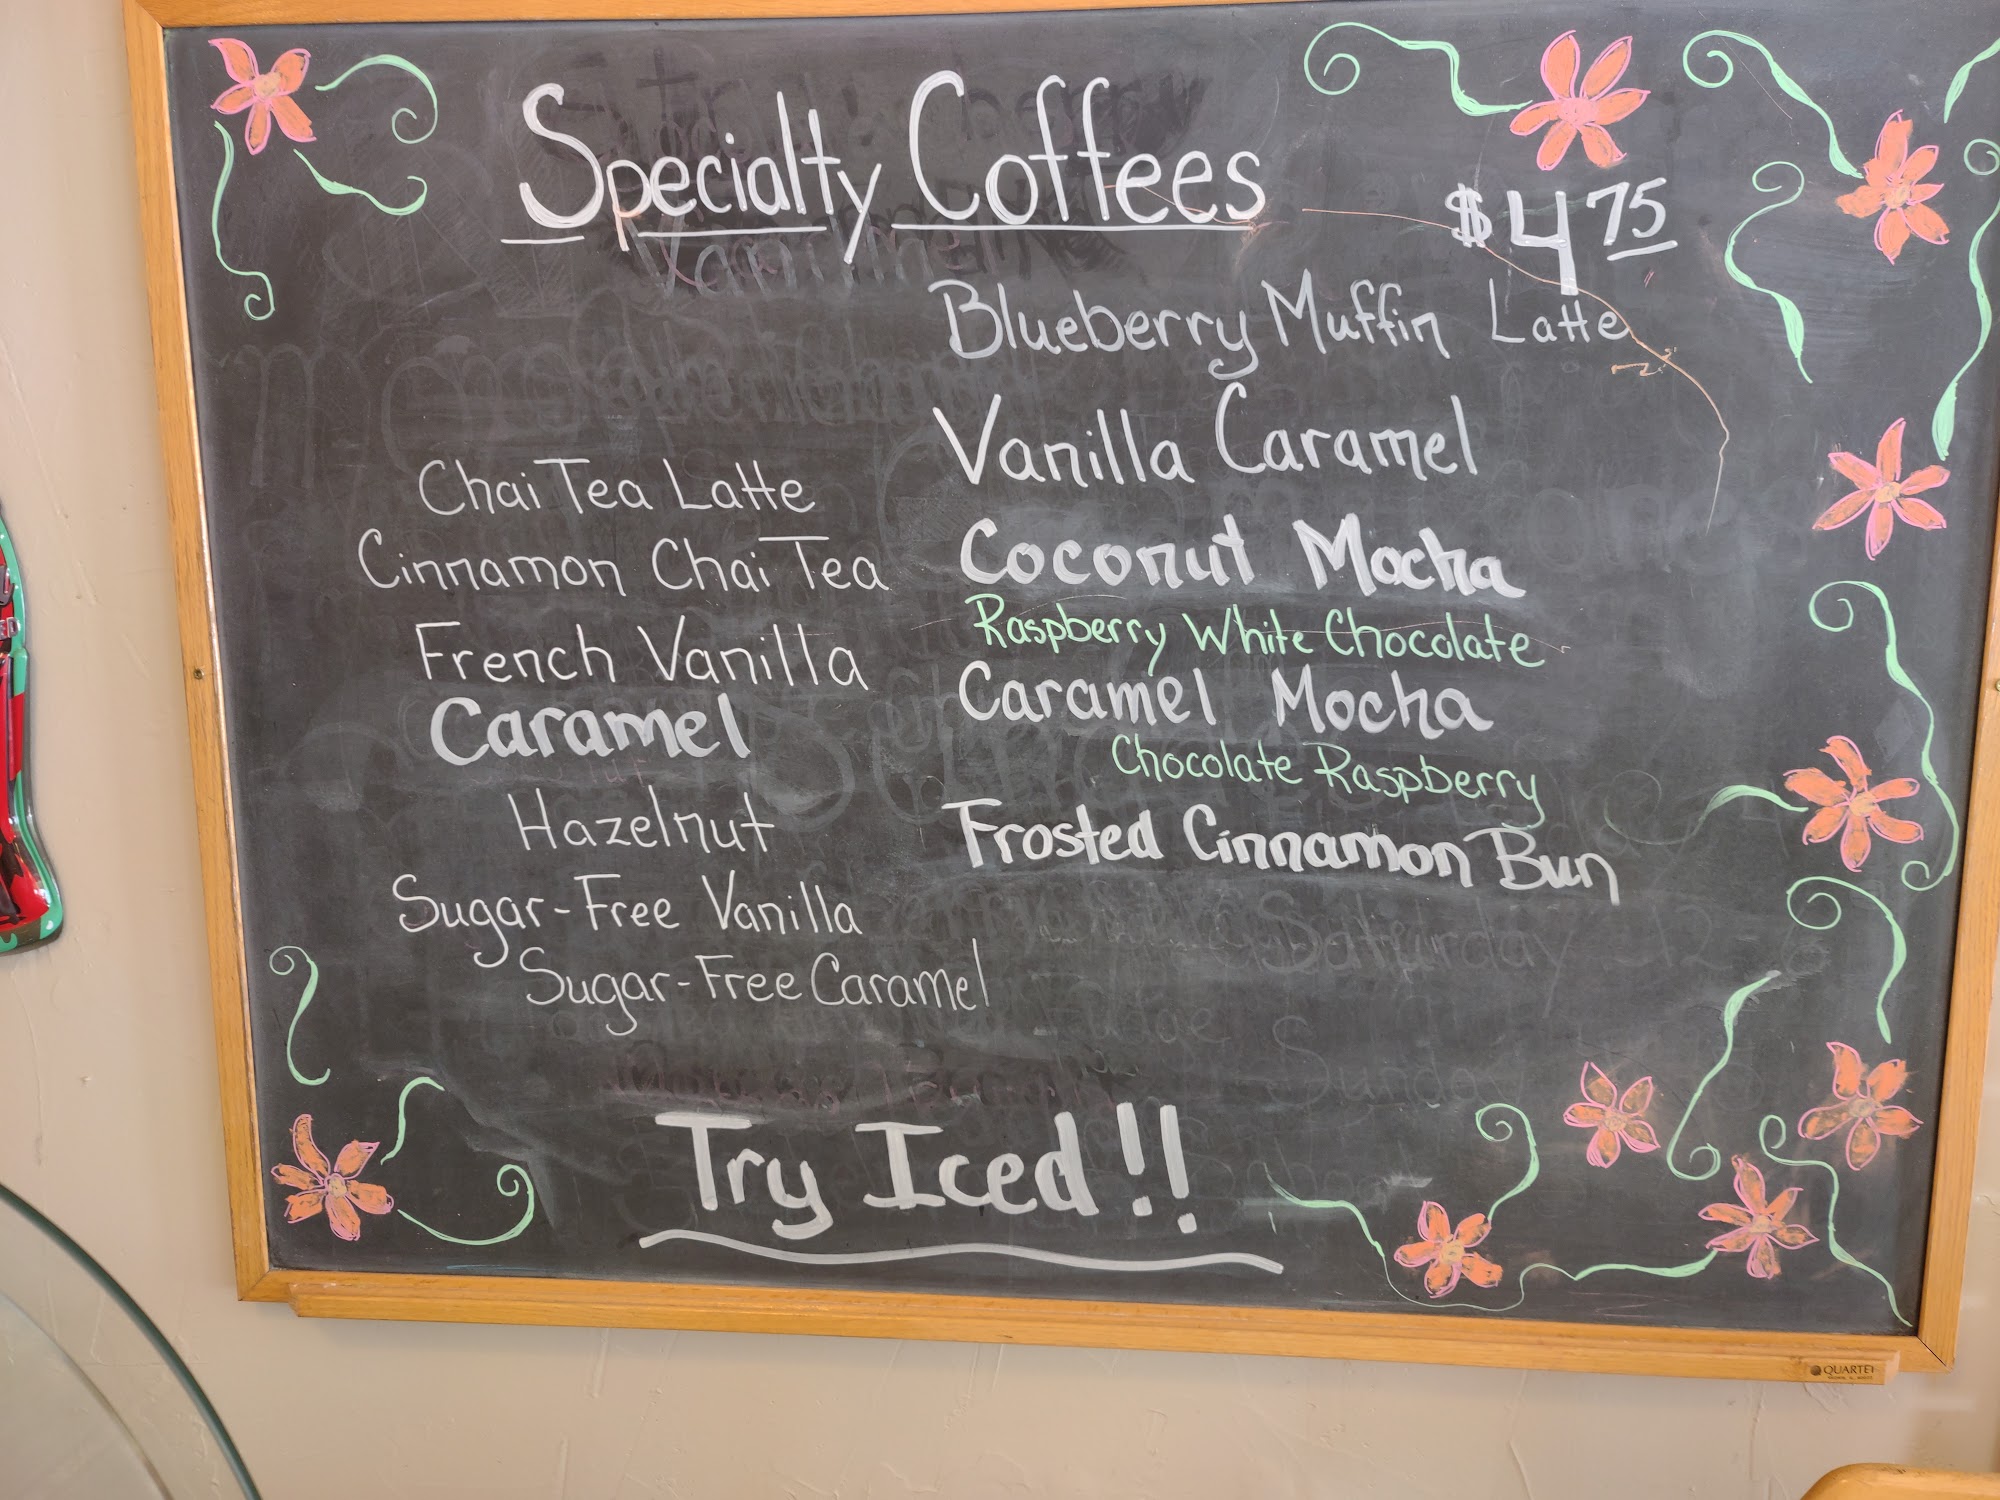 Specialty Coffees
$4 75
Chai Tea Latte
Cinnamon Chai Tea
French Vanilla
Caramel
Hazelnut
Sugar-Free Vanilla
Sugar-Free Caramel
Blueberry Muffin Latte
Vanilla Caramel
Coconut Mocha
Raspberry White Chocolate
Caramel Mocha
Chocolate Raspberry
Frosted Cinnamon Bun
Saturday 12-
Sunday
Try Iced!!
QUARTET